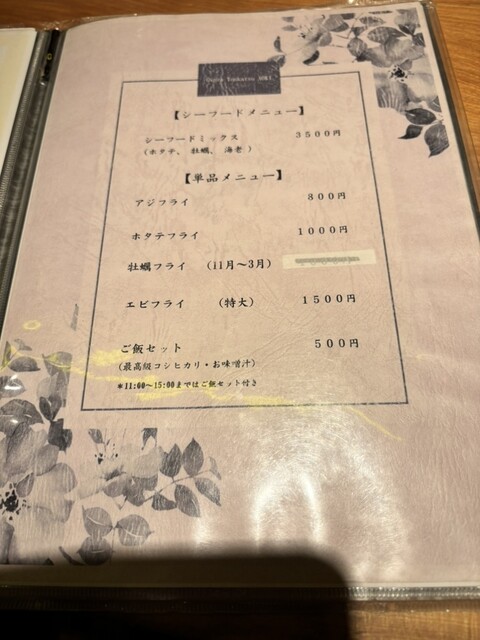 【シーフードメニュー】
シーフードミックス 3500円
(ホタテ、牡蠣、海老)
【単品メニュー】
アジフライ 800円
ホタテフライ 1000円
牡蠣フライ (11月〜3月)
エビフライ (特大) 1500円
ご飯セット 500円
(最高級コシヒカリ・お味噌汁)
*11:00〜15:00まではご飯セット付き